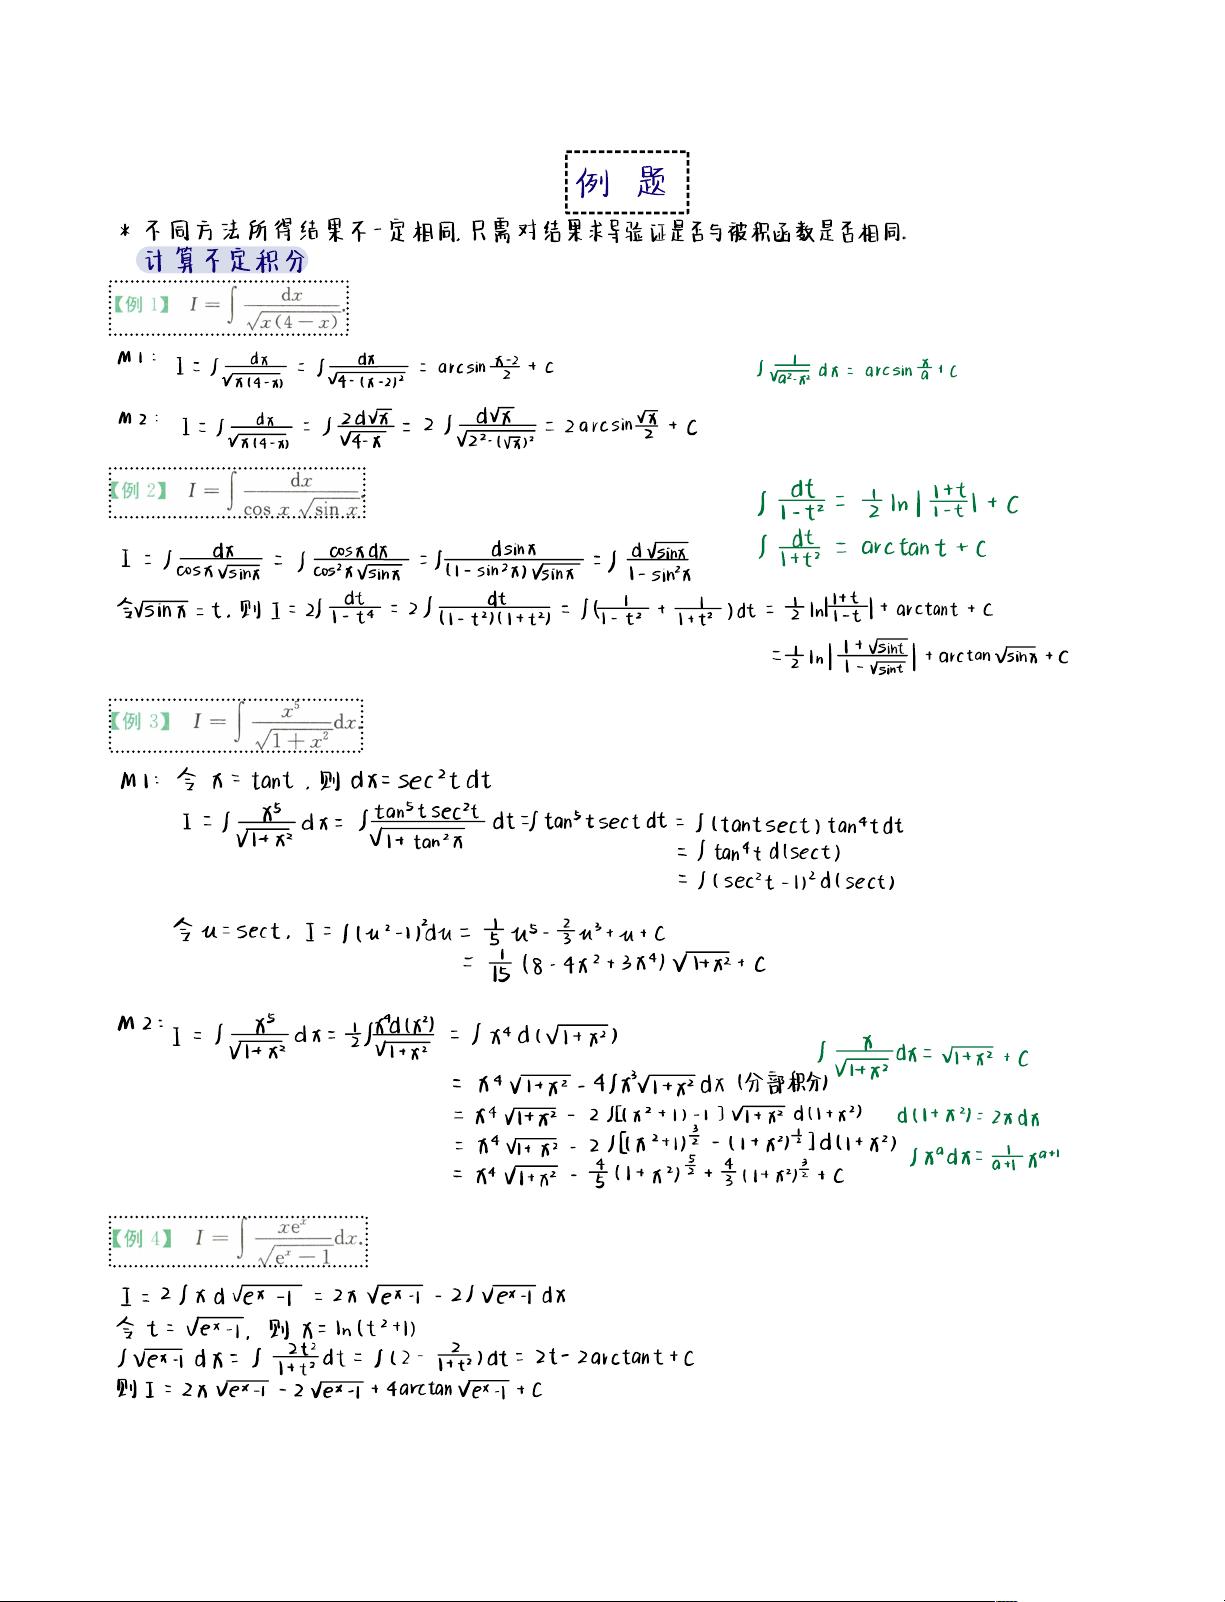 例 题
* 不同方法所得结果不一定相同,只需对结果求导验证是否与被积函数是否相同.
计算不定积分
【例 1】 I = ∫ dx/√(x(4-x)).
M1: I = ∫ dx/√(x(4-x)) = ∫ dx/√(4-(x-2)²) = arcsin (x-2)/2 + C
∫ 1/√(a²-x²) dx = arcsin x/a + C
M2: I = ∫ dx/√(x(4-x)) = ∫ 2d√x/√(4-x) = 2∫ d√x/√(2²-(√x)²) = 2arcsin √x/2 + C
【例 2】 I = ∫ dx/(cos x √(sin x)).
∫ dt/(1-t²) = 1/2 ln|(1+t)/(1-t)| + C
∫ dt/(1+t²) = arctan t + C
I = ∫ dx/(cosx√(sinx)) = ∫ cosxdx/(cos²x√(sinx)) = ∫ dsinx/((1-sin²x)√(sinx)) = ∫ d√(sinx)/(1-sin²x)
令√(sinx) = t, 则 I = 2∫ dt/(1-t⁴) = 2∫ dt/((1-t²)(1+t²)) = ∫(1/(1-t²) + 1/(1+t²))dt = 1/2 ln|(1+t)/(1-t)| + arctant + C
= 1/2 ln|(1+√(sint))/(1-√(sint))| + arctan√(sinx) + C
【例 3】 I = ∫ x⁵/√(1+x²) dx.
M1: 令 x = tant, 则 dx = sec²t dt
I = ∫ x⁵/√(1+x²) dx = ∫ tan⁵t sec²t/√(1+tan²x) dt = ∫tan⁵t sect dt = ∫(tant sect) tan⁴t dt
= ∫ tan⁴t d(sect)
= ∫(sec²t-1)² d(sect)
令 u = sect, I = ∫(u²-1)²du = 1/5 u⁵ - 2/3 u³ + u + C
= 1/15 (8-4x²+3x⁴)√(1+x²) + C
M2: I = ∫ x⁵/√(1+x²) dx = 1/2∫ x⁴d(x²)/√(1+x²) = ∫ x⁴ d(√(1+x²))
∫ x/√(1+x²) dx = √(1+x²) + C
= x⁴√(1+x²) - 4∫x³√(1+x²) dx (分部积分)
= x⁴√(1+x²) - 2∫[(x²+1)-1]√(1+x²) d(1+x²)
d(1+x²) = 2xdx
= x⁴√(1+x²) - 2∫[(x²+1)^(3/2) - (1+x²)^(1/2)]d(1+x²)
∫xᵃdx = 1/(a+1) xᵃ⁺¹
= x⁴√(1+x²) - 4/5 (1+x²)^(5/2) + 4/3 (1+x²)^(3/2) + C
【例 4】 I = ∫ xeˣ/√(eˣ-1) dx.
I = 2∫ x d√(eˣ-1) = 2x√(eˣ-1) - 2∫√(eˣ-1) dx
令 t = √(eˣ-1), 则 x = ln(t²+1)
∫√(eˣ-1) dx = ∫ 2t²/(1+t²) dt = ∫(2 - 2/(1+t²))dt = 2t - 2arctant + C
则 I = 2x√(eˣ-1) - 2√(eˣ-1) + 4arctan√(eˣ-1) + C